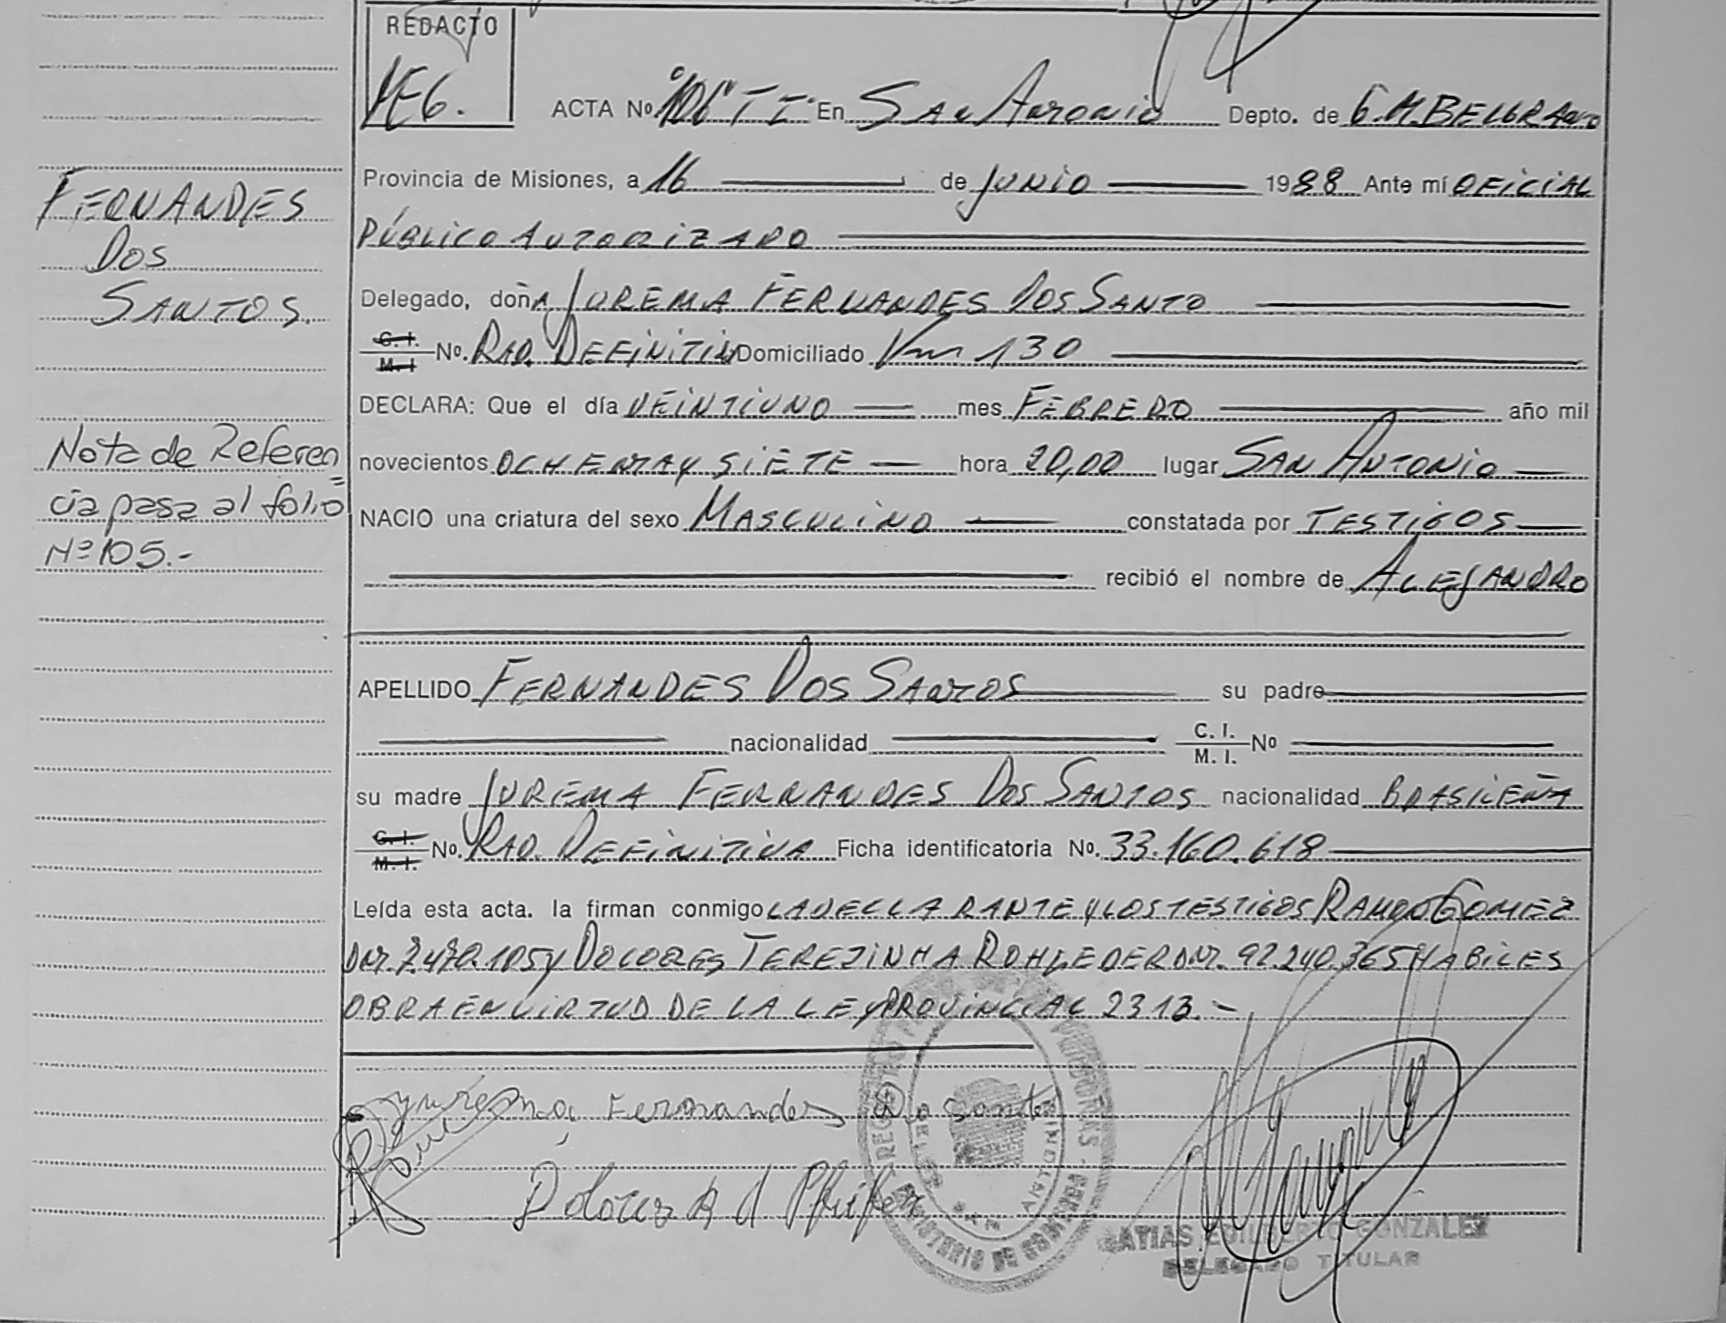 REDACTO
MEG.
ACTA No. 106 T I En SAN ANTONIO Depto. de G.M.BELGRANO
Provincia de Misiones, a 16 de JUNIO 1988 Ante mí OFICIAL
PÚBLICO AUTORIZADO
Delegado, doña JUREMA FERNANDES DOS SANTO
C. I.
M. I No. RAD. DEFINITIVA Domiciliado Km 130
DECLARA: Que el día VEINTIUNO mes FEBRERO año mil
novecientos OCHENTA Y SIETE hora 20,00 lugar SAN ANTONIO
NACIO una criatura del sexo MASCULINO constatada por TESTIGOS
recibió el nombre de ALEJANDRO
APELLIDO FERNANDES DOS SANTOS su padre
nacionalidad C. I.
M. I. No
su madre JUREMA FERNANDES DOS SANTOS nacionalidad BRASILEÑA
C. I.
M. I. No. RAD. DEFINITIVA Ficha identificatoria No. 33.160.618
Leída esta acta. la firman conmigo LA DECLARANTE Y LOS TESTIGOS RAMON GOMEZ
DNI. 7.470.105 Y DOLORES TEREZINHA ROHLEDER DNI. 92.240.365 HABILES
OBRA EN VIRTUD DE LA LEY PROVINCIAL 2313.-
FERNANDES
DOS
SANTOS.
Nota de Referen
cia pasa al folio
Nº 105.-
Fernandes
MINISTERIO DE GOBIERNO
SAN ANTONIO
MATIAS EDILBERTO GONZALEZ
DELEGADO TITULAR